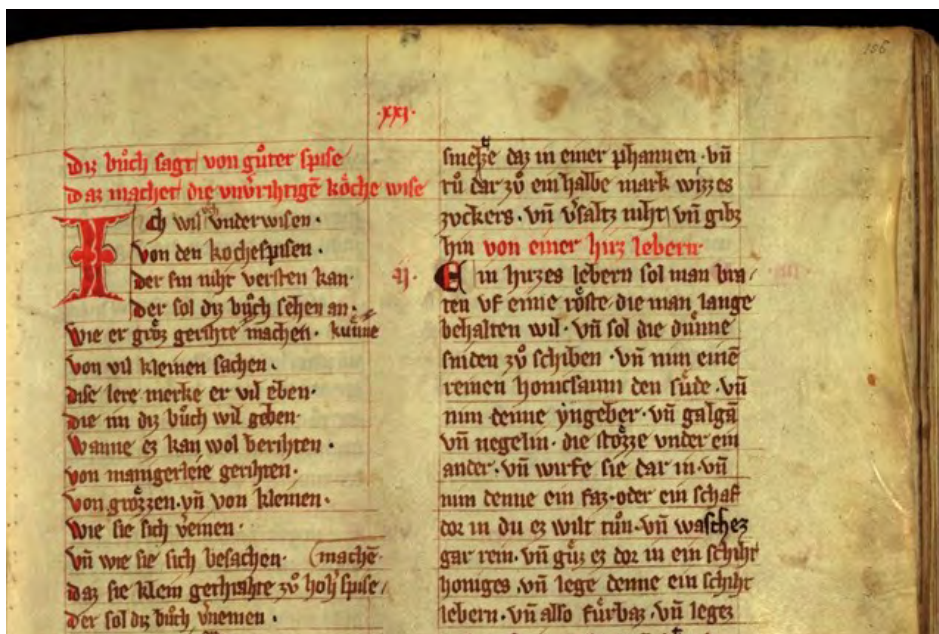 156
·xxi·
diz bůch sagt von gůter spise
daz machet die vnv̓rihtigē köche wise
Ich wil vch vnderwisen·
von den kochespisen·
der sin niht versten kan·
der sol diz bůch sehen an·
wie er groz gerihte machen· kuͤnne
von vil kleinen sachen·
dise lere merke er vil eben·
die im diz bůch wil geben·
wanne ez kan wol berihten·
von manigerleie gerihten·
von grozzen· vn̄ von kleinen·
wie sie sich v̓einen·
vn̄ wie sie sich besachen· (machē·
daz sie klein gerihte zů hoh̓ spise/
der sol diz bůch v̓nemen·
smeltze daz in einer phannen· vn̄
tů dar zů ein halbe mark wizzes
zvckers· vn̄ v̓saltz niht vn̄ gibz
hin von einer hirz lebern·
ij· Ein hirzes lebern sol man bra/
ten vf eime röste· die man lange
behalten wil· vn̄ sol die dünne
sniden zů schiben· vn̄ nim einē
reinen honicsaum den süde· vn̄
nim denne yngeber· vn̄ galgā
vn̄ negelin· die stözze vnder ein
ander· vn̄ wirfe sie dar in· vn̄
nim denne ein faz· oder ein schaf
dor in du ez wilt tůn· vn̄ waschez
gar rein· vn̄ güz ez dor in ein schiht
honiges· vn̄ lege denne ein schiht
lebern· vn̄ also fürbaz· vn̄ legez